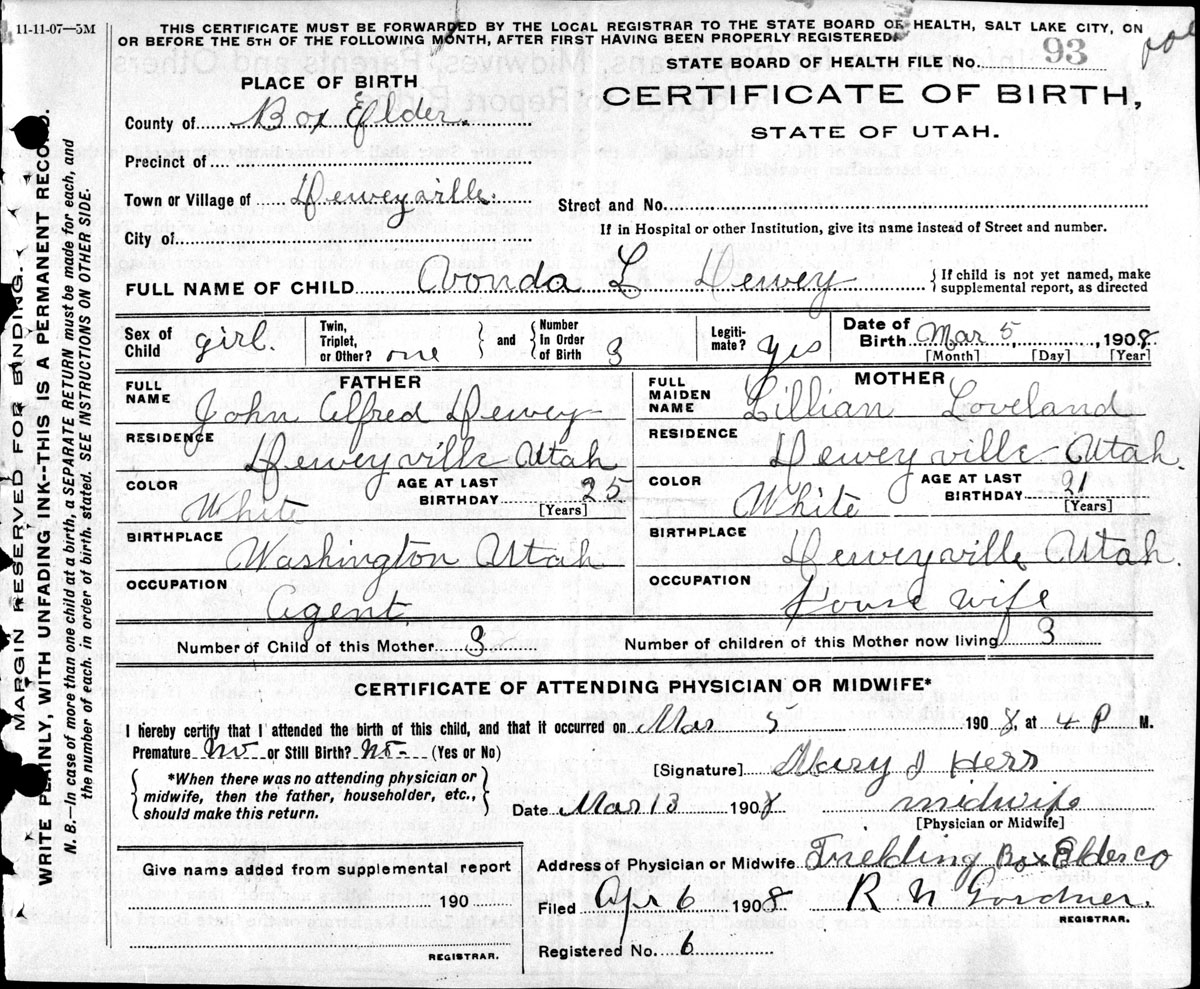 11-11-07—5M
THIS CERTIFICATE MUST BE FORWARDED BY THE LOCAL REGISTRAR TO THE STATE BOARD OF HEALTH, SALT LAKE CITY, ON
OR BEFORE THE 5TH OF THE FOLLOWING MONTH, AFTER FIRST HAVING BEEN PROPERLY REGISTERED.
STATE BOARD OF HEALTH FILE No. 93
PLACE OF BIRTH
CERTIFICATE OF BIRTH,
STATE OF UTAH.
County of Box Elder.
Precinct of
Town or Village of Deweyville.
Street and No.
If in Hospital or other Institution, give its name instead of Street and number.
City of
FULL NAME OF CHILD Ovonda L Dewey
If child is not yet named, make
supplemental report, as directed
Sex of Child girl.
Twin, Triplet, or Other? one
and
Number In Order of Birth 3
Legiti-mate? yes
Date of Birth Mar 5, 1908
[Month] [Day] [Year]
FATHER
FULL NAME John Alfred Dewey
RESIDENCE Deweyville Utah
COLOR White
AGE AT LAST BIRTHDAY 25
[Years]
BIRTHPLACE Washington Utah
OCCUPATION Agent
MOTHER
FULL MAIDEN NAME Lillian Loveland
RESIDENCE Deweyville Utah.
COLOR White
AGE AT LAST BIRTHDAY 21
[Years]
BIRTHPLACE Deweyville Utah.
OCCUPATION House wife
Number of Child of this Mother 3
Number of children of this Mother now living 3
CERTIFICATE OF ATTENDING PHYSICIAN OR MIDWIFE*
I hereby certify that I attended the birth of this child, and that it occurred on Mar 5 1908, at 4 P M.
Premature No or Still Birth? No (Yes or No)
*When there was no attending physician or
midwife, then the father, householder, etc.,
should make this return.
[Signature] Mary J Herr
Date Mar 13 1908 midwife
[Physician or Midwife]
Give name added from supplemental report
190
REGISTRAR.
Address of Physician or Midwife Fielding Box Elder co
Filed Apr 6 1908 R N Gardner.
REGISTRAR.
Registered No. 6
MARGIN RESERVED FOR BINDING.
WRITE PLAINLY, WITH UNFADING INK--THIS IS A PERMANENT RECORD.
N. B.—In case of more than one child at a birth, a SEPARATE RETURN must be made for each, and
the number of each, in order of birth, stated. SEE INSTRUCTIONS ON OTHER SIDE.